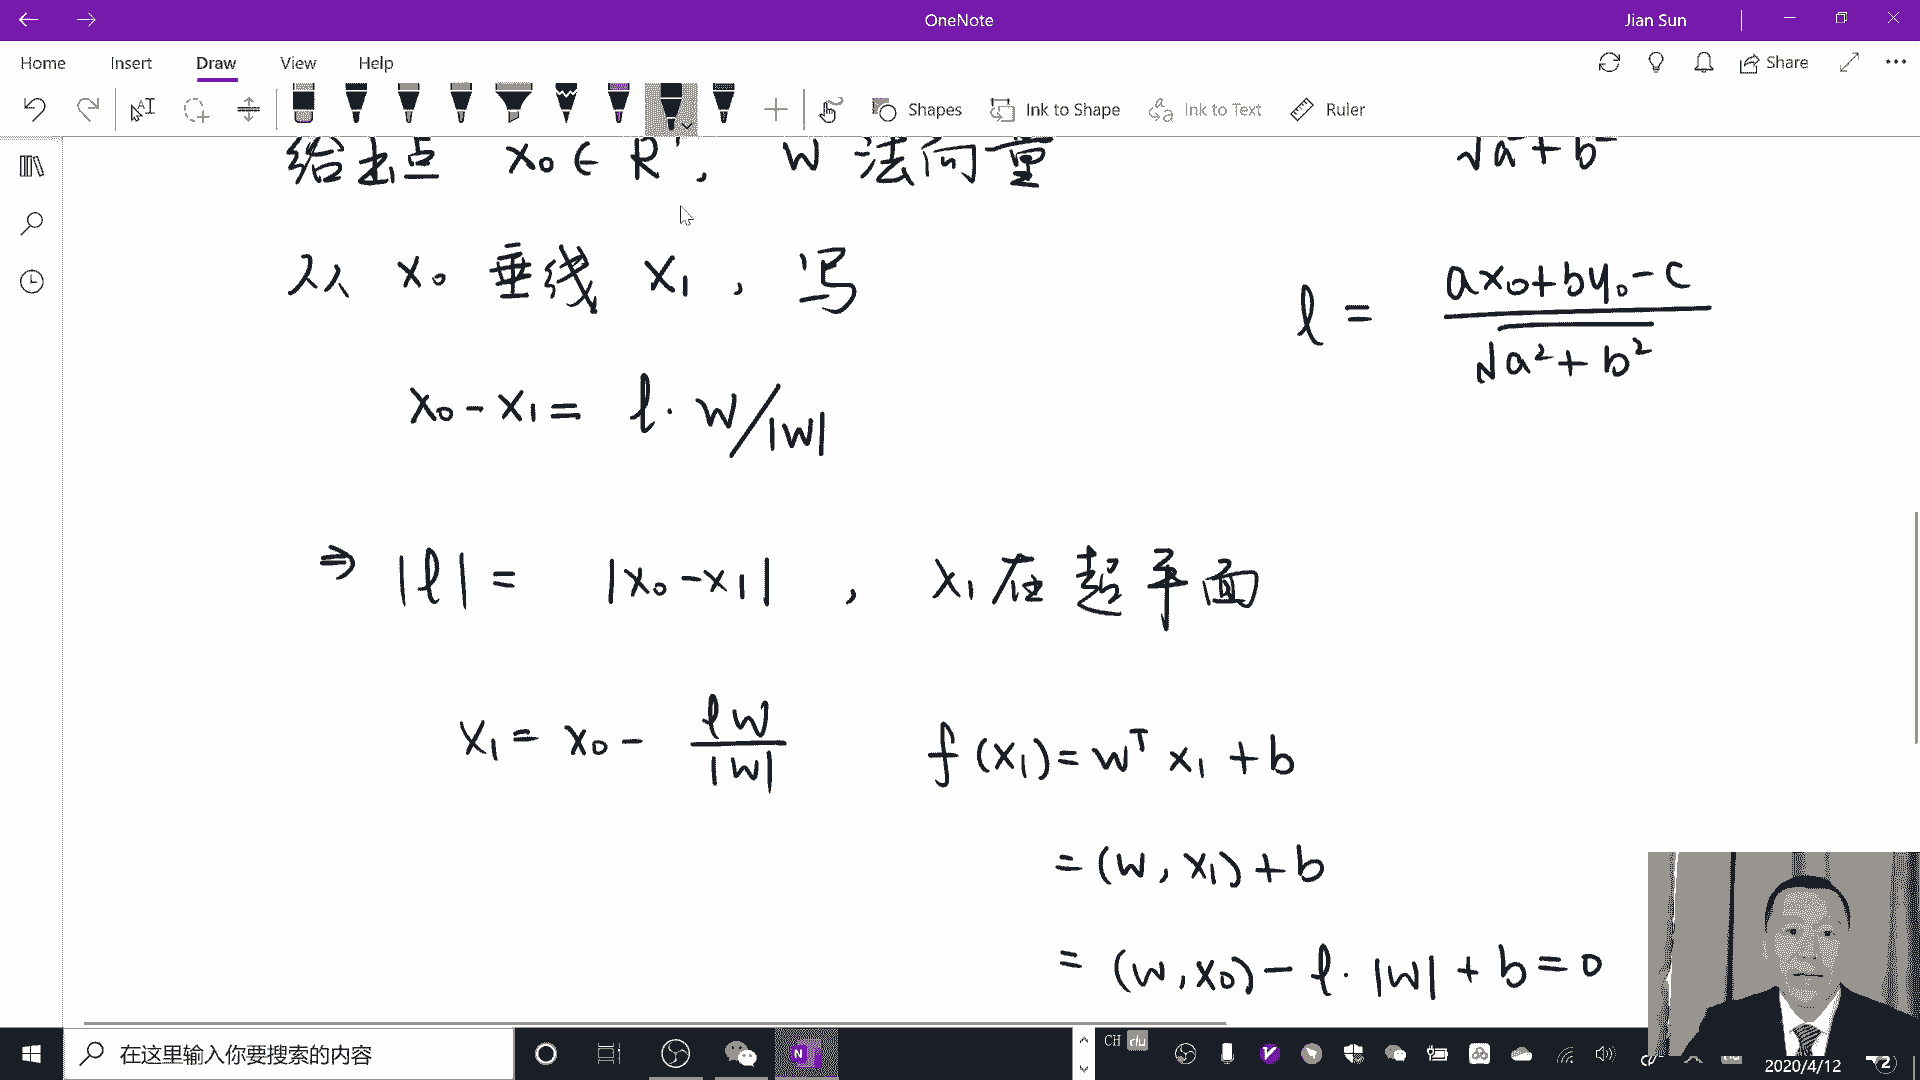 OneNote
Jian Sun
Home Insert Draw View Help
Share
Shapes Ink to Shape Ink to Text Ruler
给出点 x₀ ∈ R', W 法向量
从 x₀ 垂线 x₁, 写
x₀ - x₁ = l · W/|W|
⇒ |l| = |x₀ - x₁| , x₁ 在超平面
x₁ = x₀ - lW/|W|
f(x₁) = wᵀ x₁ + b
= (w, x₁) + b
= (w, x₀) - l · |w| + b = 0
√a + b
l = (ax₀ + by₀ - c)/√(a² + b²)
在这里输入你要搜索的内容
CH
2020/4/12
2